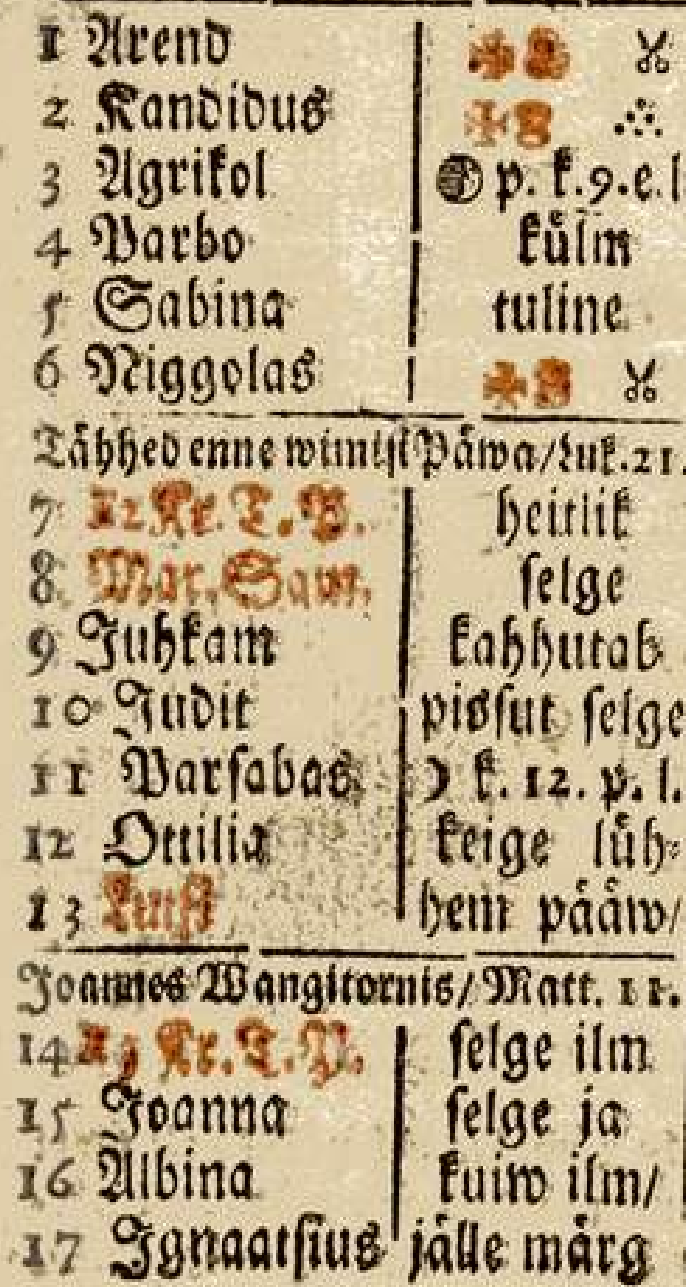 1 Arend
2 Kandidus
3 Agrikol p. k. 9. e. l
4 Parbo külm
5 Sabina tuline
6 Niggolas
Tähhed enne wimist Päwa/ Luk. 21.
7 Kr. T. P. heitlik
8. Mar. Saam. selge
9 Juhkam kahhutab
10 Judit pissut selge
11 Parsabas k. 12. p. l.
12 Ottilia keige lüh⸗
13 hem pääw/
Joannes Wangitornis/ Matt. 11.
14 Kr. T. P. selge ilm
15 Joanna selge ja
16 Albina kuiw ilm/
17 Ignaatsius jälle märg